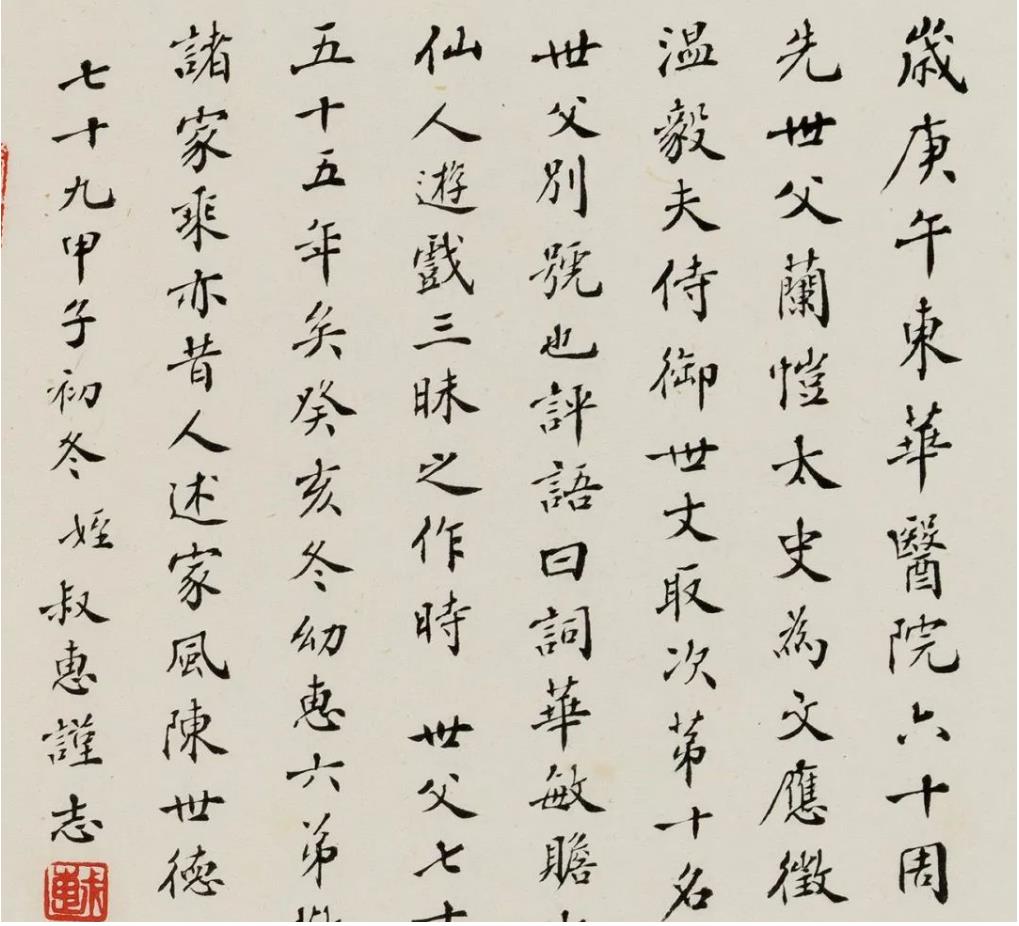 歲庚午東華醫院六十周
先世父蘭愷太史為文應徵
溫毅夫侍御世丈取次第十名
世父別號也評語曰詞華敏贍
仙人遊戲三昧之作時 世父七十
五十五年矣癸亥冬幼惠六弟
諸家乘亦昔人述家風陳世德
七十九甲子初冬姪叔惠謹志